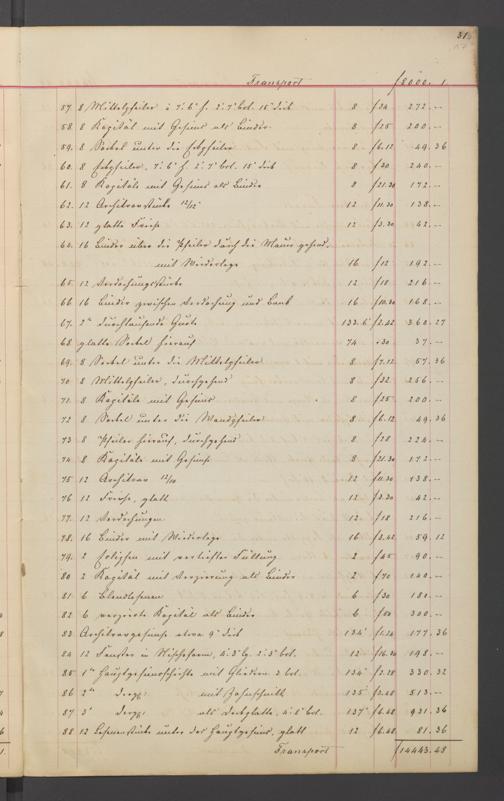 31
Transport f 8000. 1
57. 8 Mittelpfeiler à 7.'6" h. 2.'7" brt. 15" dick 8 f 34 272.--
58. 8 Kapitäl mit Gesims als Binder 8 f 25 200.--
59. 8 Sockel unter die Eckpfeiler 8 f 6.12 49.36
60. 8 Eckpfeiler, 7.'6" h. 2.'7" brt. 15" dick 8 f 30 240.--
61. 8 Kapitäle mit Gesims als Binder 8 f 21.30 172.--
62. 12 Architravstücke 12/12" 12 f 11.30 138.--
63. 12 glatte Friese 12 f 3.30 42.--
64. 16 Binder über die Pfeiler durch die Mauer gehend
mit Wiederlage 16 f 12 192.--
65. 12 Verdachungsstücke 12 f 18 216.--
66 16 Binder zwischen Verdachung und Bank 16 f 10.30 168.--
67. 2" durchlaufende Gurte 133.6" f 2.42 360.27
68 glatte Sockel hierauf 74 .30 37.--
69. 8 Sockel unter die Mittelpfeiler 8 f 7.12 57.36
70 8 Mittelpfeiler, durchgehend 8 f 32 256.--
71. 8 Kapitäle mit Gesims 8 f 25 200.--
72 8 Sockel unter die Wandpfeiler 8 f 6.12 49.36
73 8 Pfeiler hierauf, durchgehend 8 f 28 224.--
74 8 Kapitäle mit Gesims 8 f 21.30 172.--
75 12 Architrav 12/10 12 f 11.30 138.--
76 12 Friese, glatt 12 f 3.30 42.--
77. 12 Verdachungen 12 f 18 216.--
78. 16 Binder mit Wiederlage 16 f 3.42 59.12
79. 2 mit vertiefter Füllung 2 f 45 90.--
80 2 Kapitäl mit Verzierung als Binder 2 f 70 140.--
81 6 Blendlesenen 6 f 30 180.--
82 6 verzierte Kapitäl als Binder 6 f 50 300.--
83 Architravgesimse etwa 9" dick 134' 177.36
84 12 Fenster in Nischeform, 4.'3" h. 2.'5" brt. 12 f 16.30 198.--
85. 1te Hauptgesimsschichte mit Gliedern 3' brt. 134' f 2.28 330.32
86 2te dergl: mit Zahnschnitt 135' f 3.48 513.--
87 3te dergl: als Deckplatte, 4.'5" brt. 137' f 6.48 931.36
88 12 Lesenenstücke unter das Hauptgesims, glatt 12 f 6.48 81.36
Transport f 14443.48